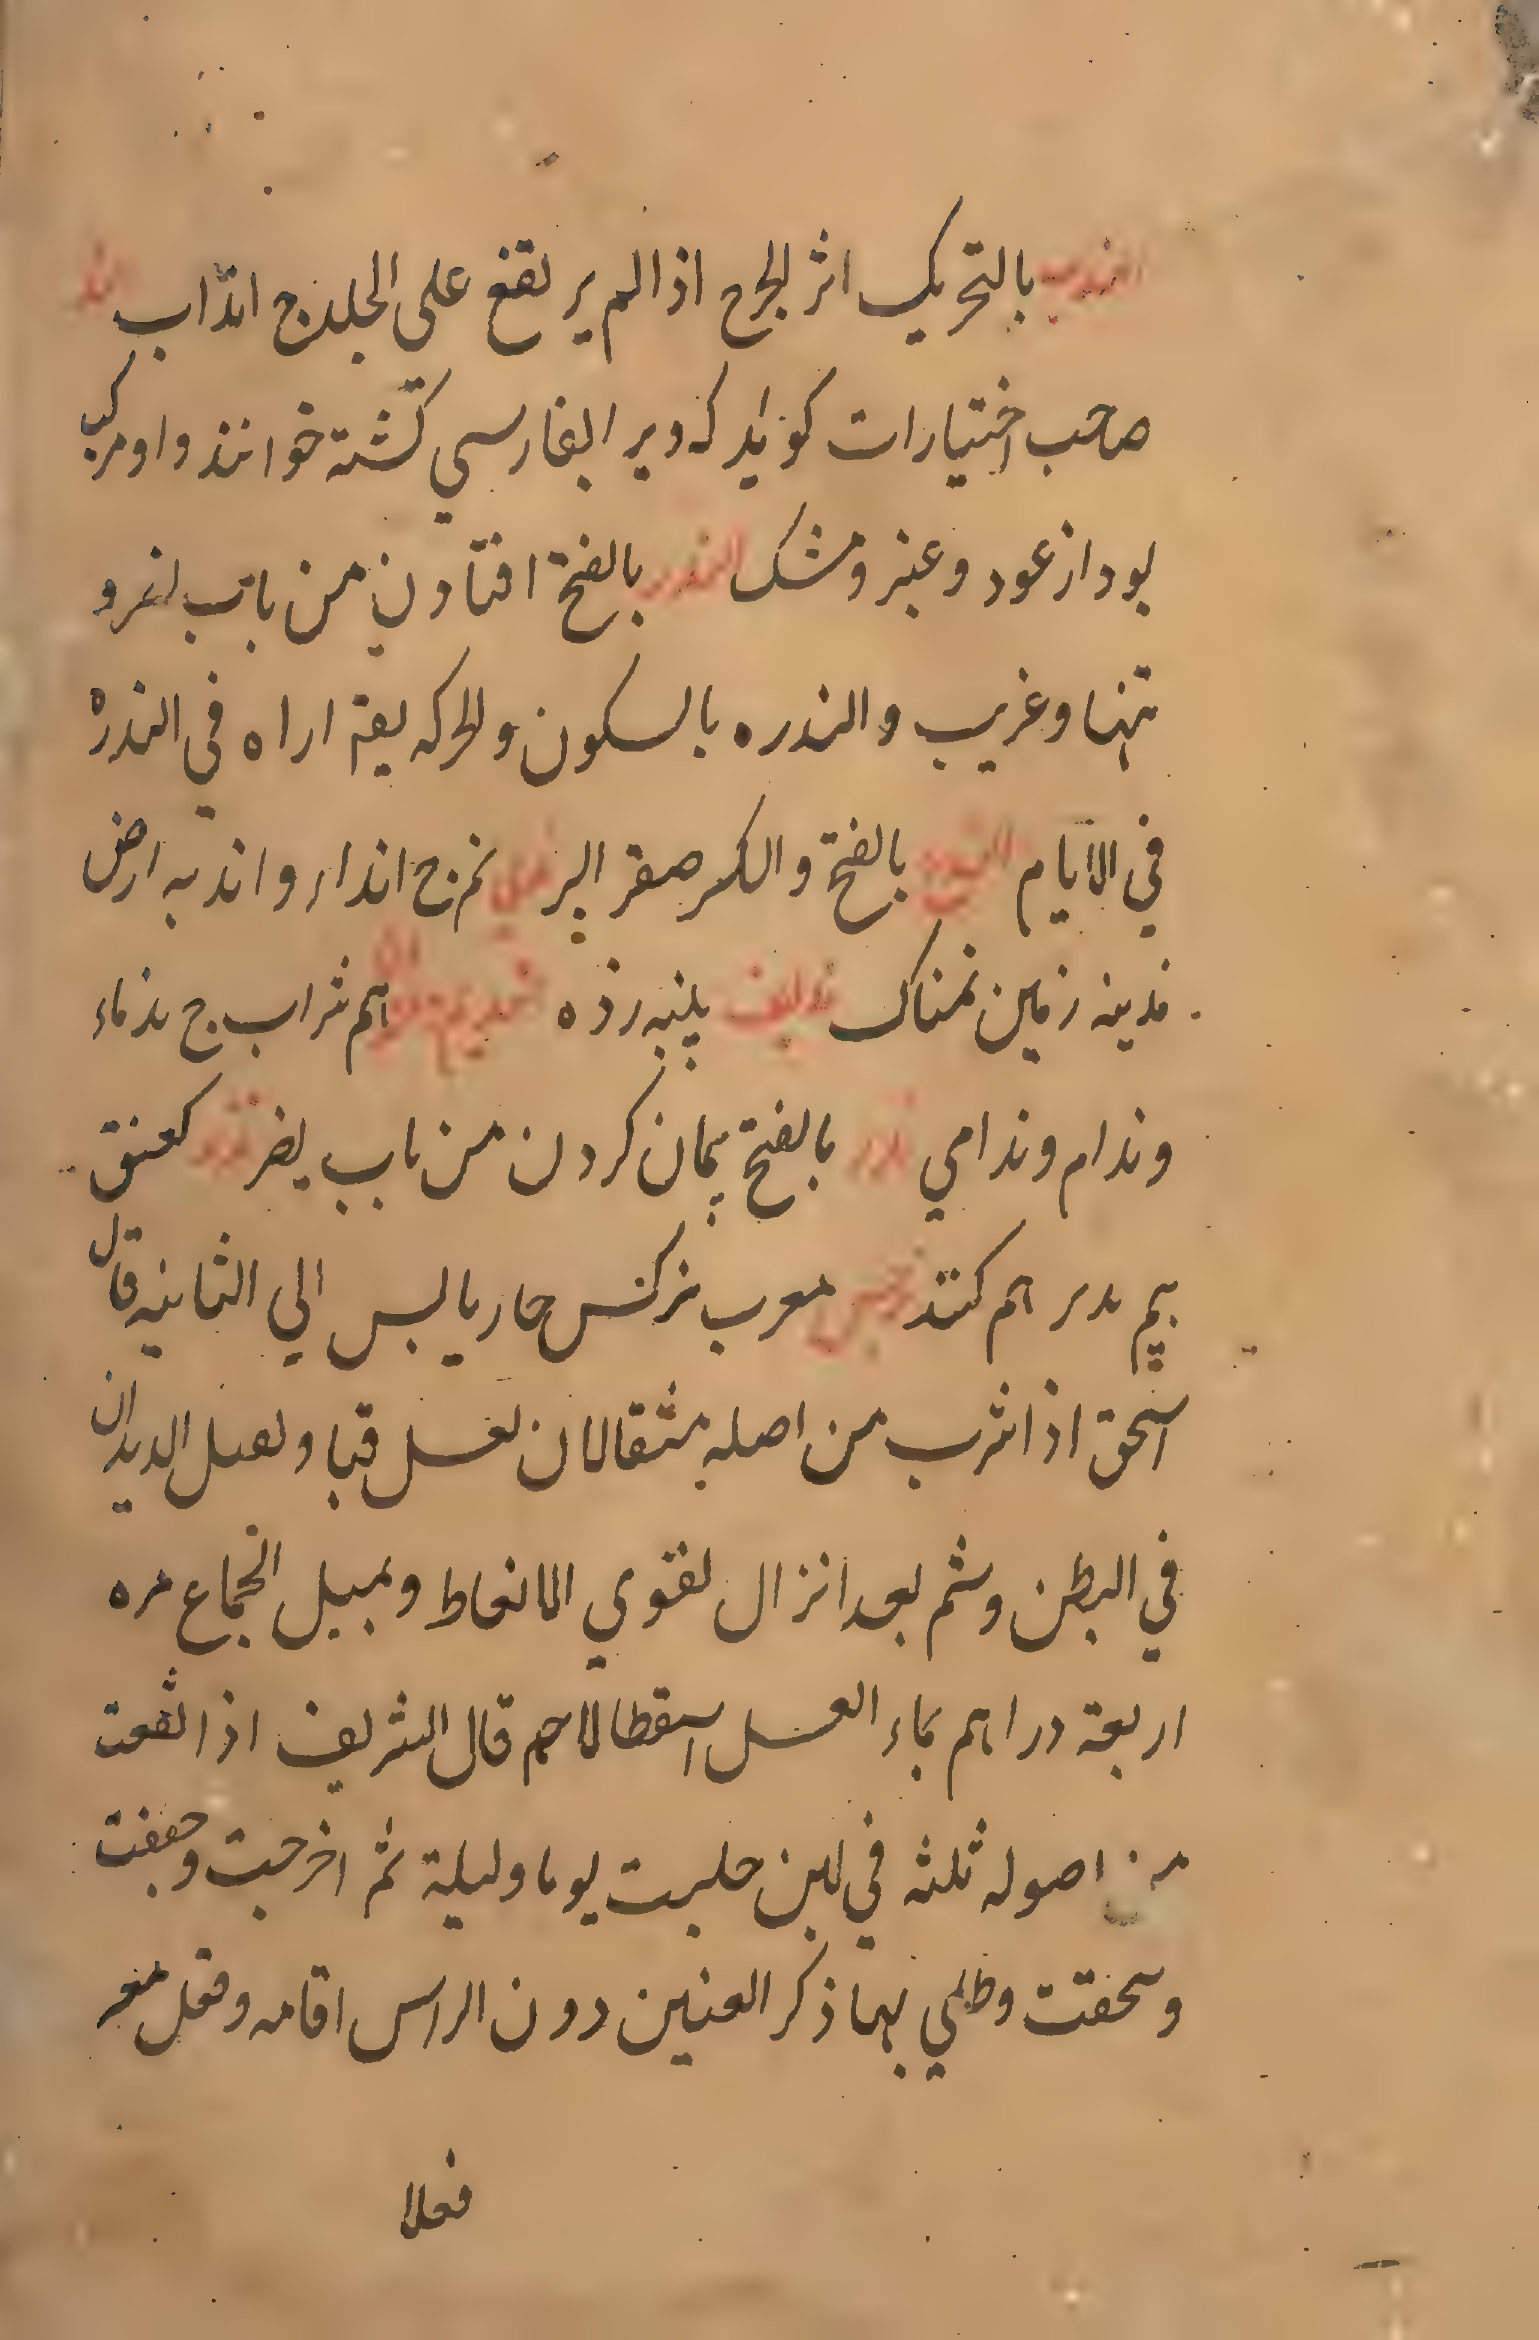 الندب بالتحریک اثر الجرح اذا لم یرتفع علی الجلد ج انداب الند
صاحب اختیارات کوید که ویرا بفارسی کشته خوانند و او مرکب
بود از عود و عنبر و مشک الندر بالفتح افتادن من باب نصر و
تنها و غریب والندره بالسکون والحرکه یقه اراه في الندره
في الایام بالفتح والکسر صقر البر ندی نم ج انداء و اندیه ارض
ندیه زمین نمناک ندیف پنبه زده ندیم هم شراب ج ندماء
وندام وندامي نذر بالفتح پیمان کردن من باب یضر نذر کعنق
بیم بدیر هم کنند نرجس معرب نرکس حار یابس الي الثانیه قال
اسحق اذا شرب من اصله مثقالان لغسل قیا و لقتل الدیدان
في البطن وشم بعد انزال لقوي الانعاط و یمیل الجماع مره
اربعة دراهم بماء العسل اسقط الاحم قال الشریف اذا نقعت
من اصوله ثلثه في لبن حلیب یوما ولیلة ثم اخرجت وجففت
وسحقت وطلي بها ذکر العنین دون الراس اقامه وفعل
فعلا